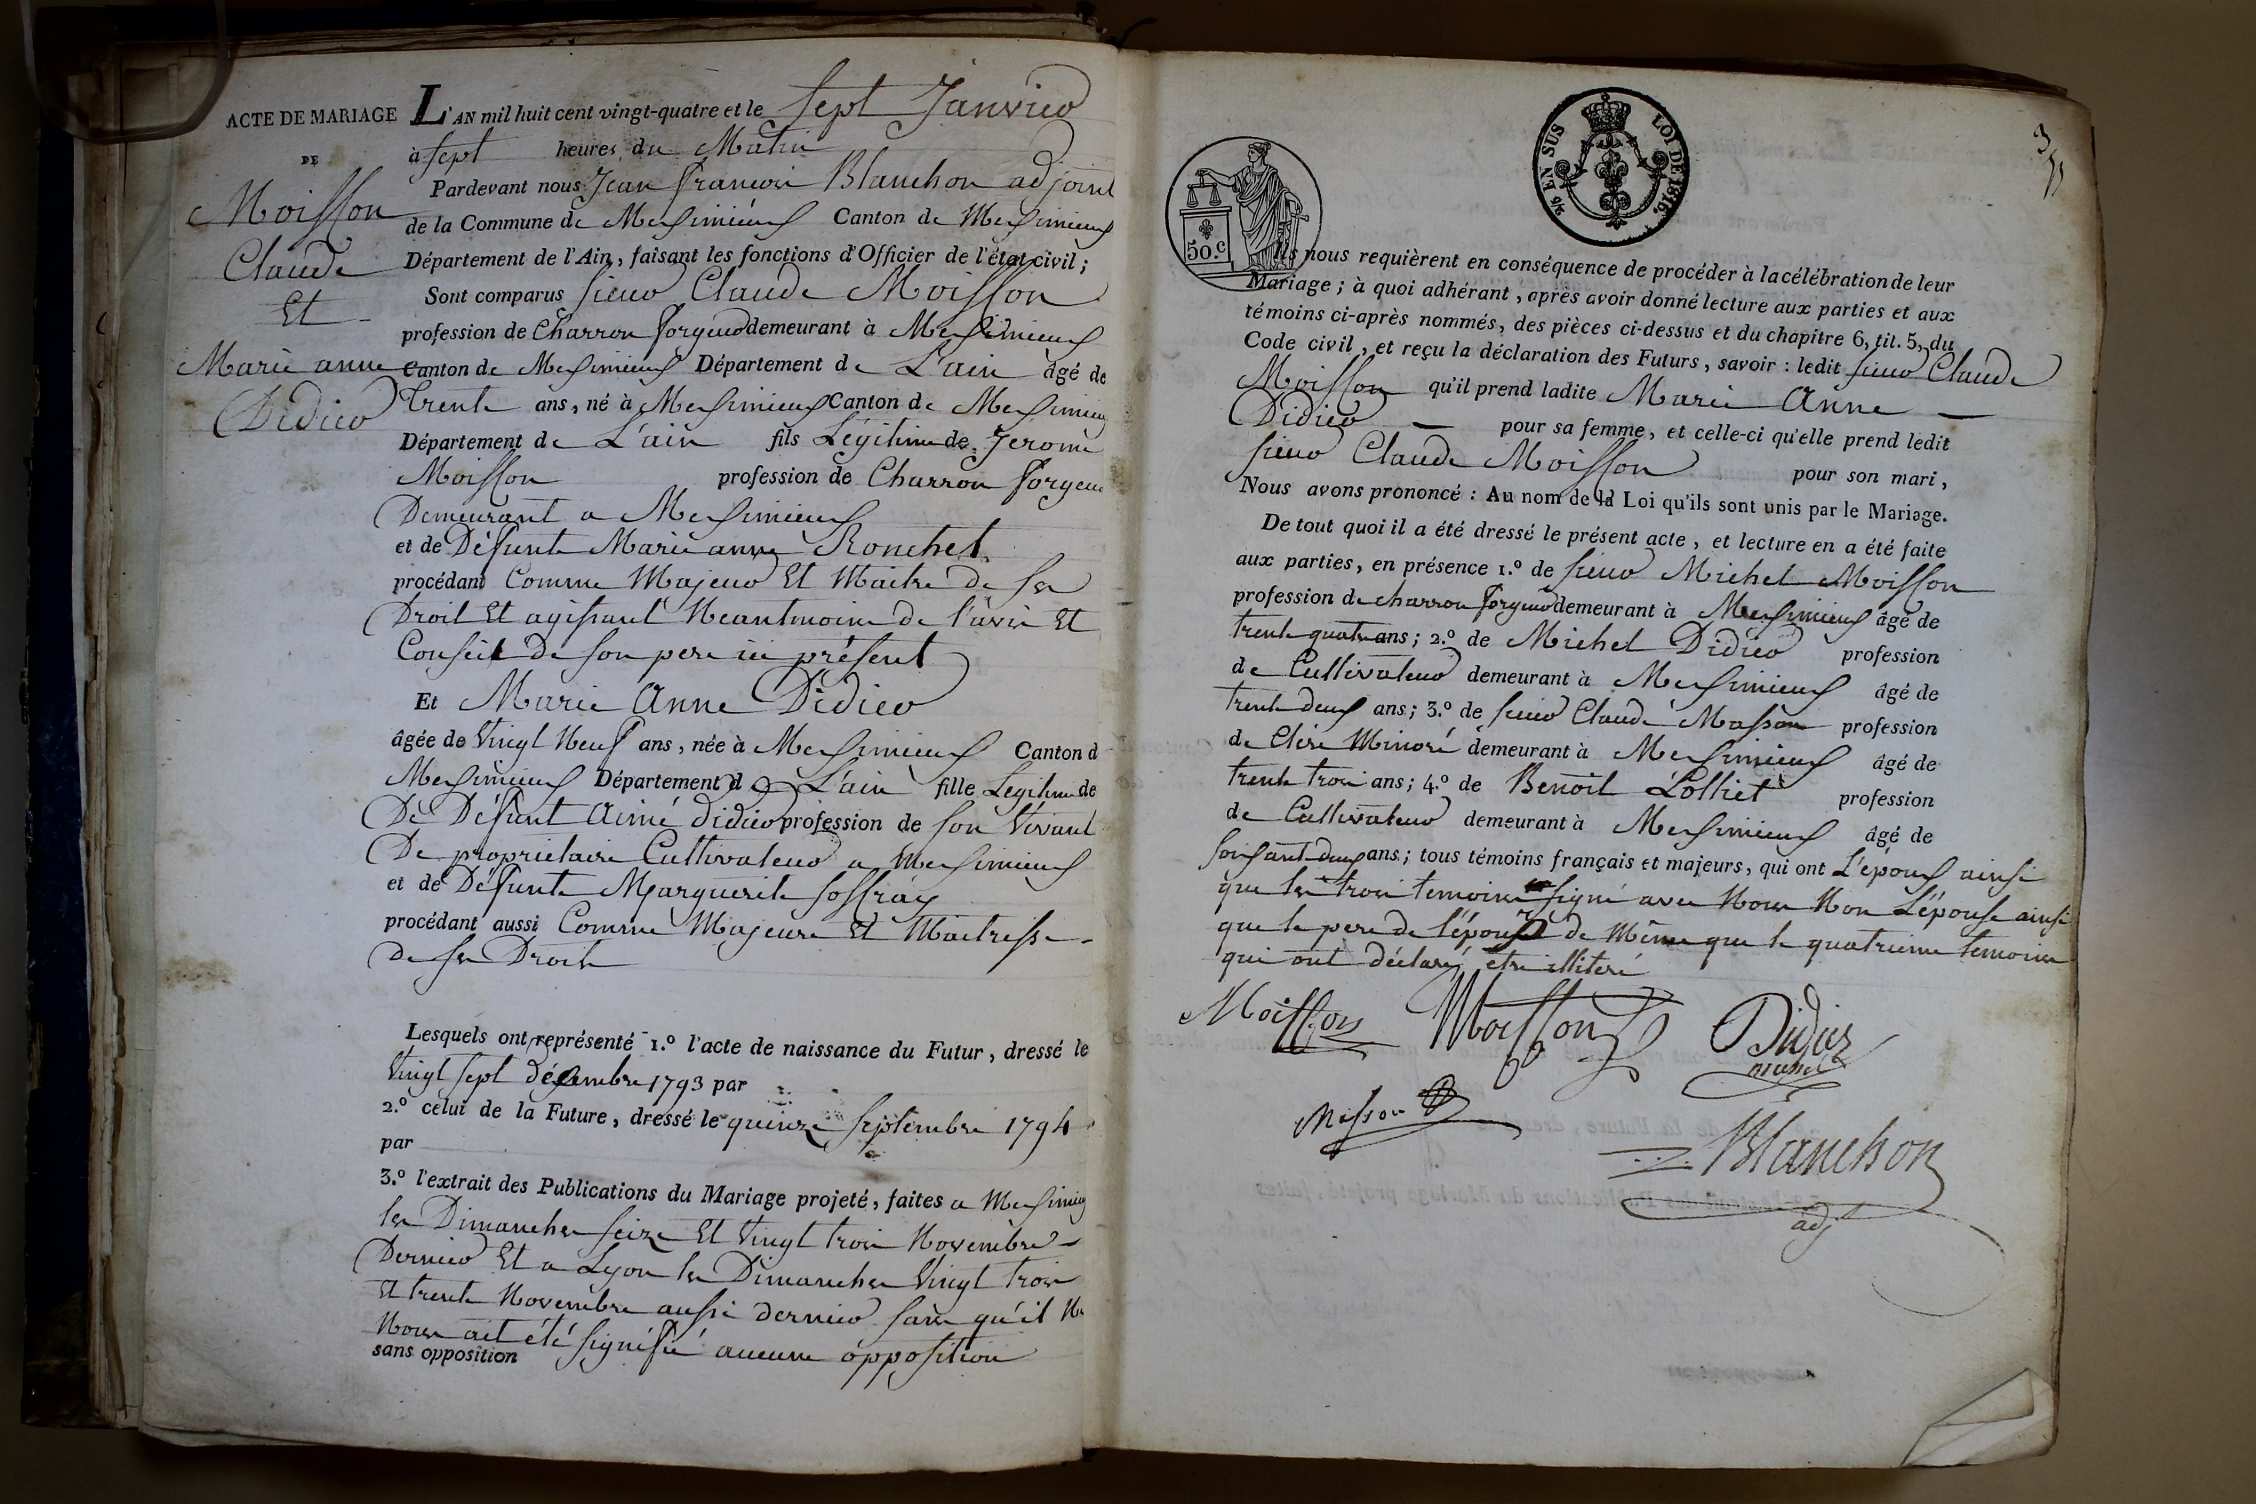 ACTE DE MARIAGE
DE
Moisson
Claude
Et
Marie anne
Didier
L'AN mil huit cent vingt-quatre et le Sept Janvier
à sept heures du Matin
Pardevant nous Jean francois Blanchon adjoint
de la Commune de Meximieux Canton de Meximieux
Département de l'Ain, faisant les fonctions d'Officier de l'état civil;
Sont comparus sieur Claude Moisson
profession de Charron forgeur demeurant à Meximieux
Canton de Meximieux Département de L'ain âgé de
trente ans, né à Meximieux Canton de Meximieux
Département de L'ain fils Légitime de Jérome
Moisson profession de Charron forgeur
Demeurant a Meximieux
et de Défunte Marie anne Ronchet
procédant Comme Majeur Et Maitre de ses
Droit Et agissant Neantmoins de l'avis Et
Conseil de son pere ici présent
Et Marie Anne Didier
âgée de Vingt Neuf ans, née à Meximieux Canton d
Meximieux Département d L'ain fille Légitime de
De Défunt Aimé didier profession de son Vivant
De propriétaire Cultivateur a Meximieux
et de Défunte Marguerite Soffray
procédant aussi Comme Majeure Et Maitresse
De ses Droits
Lesquels ont représenté 1.º l'acte de naissance du Futur, dressé le
Vingt sept décembre 1793 par
2.º celui de la Future, dressé le quinze septembre 1794
par
3.º l'extrait des Publications du Mariage projeté, faites a Meximieux
les Dimanches seize Et Vingt trois Novembre
Dernier Et a Lyon les Dimanches Vingt trois
Et trente Novembre aussi dernier sans qu'il Ne
Nous ait été signifié aucune opposition
sans opposition
5/10 EN SUS LOI DE 1816.
3
50.c
Ils nous requièrent en conséquence de procéder à la célébration de leur
Mariage; à quoi adhérant, après avoir donné lecture aux parties et aux
témoins ci-après nommés, des pièces ci-dessus et du chapitre 6, tit. 5, du
Code civil, et reçu la déclaration des Futurs, savoir: ledit sieur Claude
Moisson qu'il prend ladite Marie Anne
Didier pour sa femme, et celle-ci qu'elle prend ledit
sieur Claude Moisson pour son mari,
Nous avons prononcé: Au nom de la Loi qu'ils sont unis par le Mariage.
De tout quoi il a été dressé le présent acte, et lecture en a été faite
aux parties, en présence 1.º de sieur Michel Moisson
profession de charron forgeur demeurant à Meximieux âgé de
trente quatre ans; 2.º de Michel Didier profession
de Cultivateur demeurant à Meximieux âgé de
trente deux ans; 3.º de sieur Claude Masson profession
de Clerc Minoré demeurant à Meximieux âgé de
trente trois ans; 4.º de Benoit Lolliet profession
de Cultivateur demeurant à Meximieux âgé de
soixante deux ans; tous témoins français et majeurs, qui ont L'époux ainsi
que les trois temoins signé avec Nous Non L'épouse ainsi
que le pere de l'époux de Même que le quatrieme temoins
qui ont déclaré etre illiteré
Moisson Moisson Didier
michel
Masson
Blanchon
adj